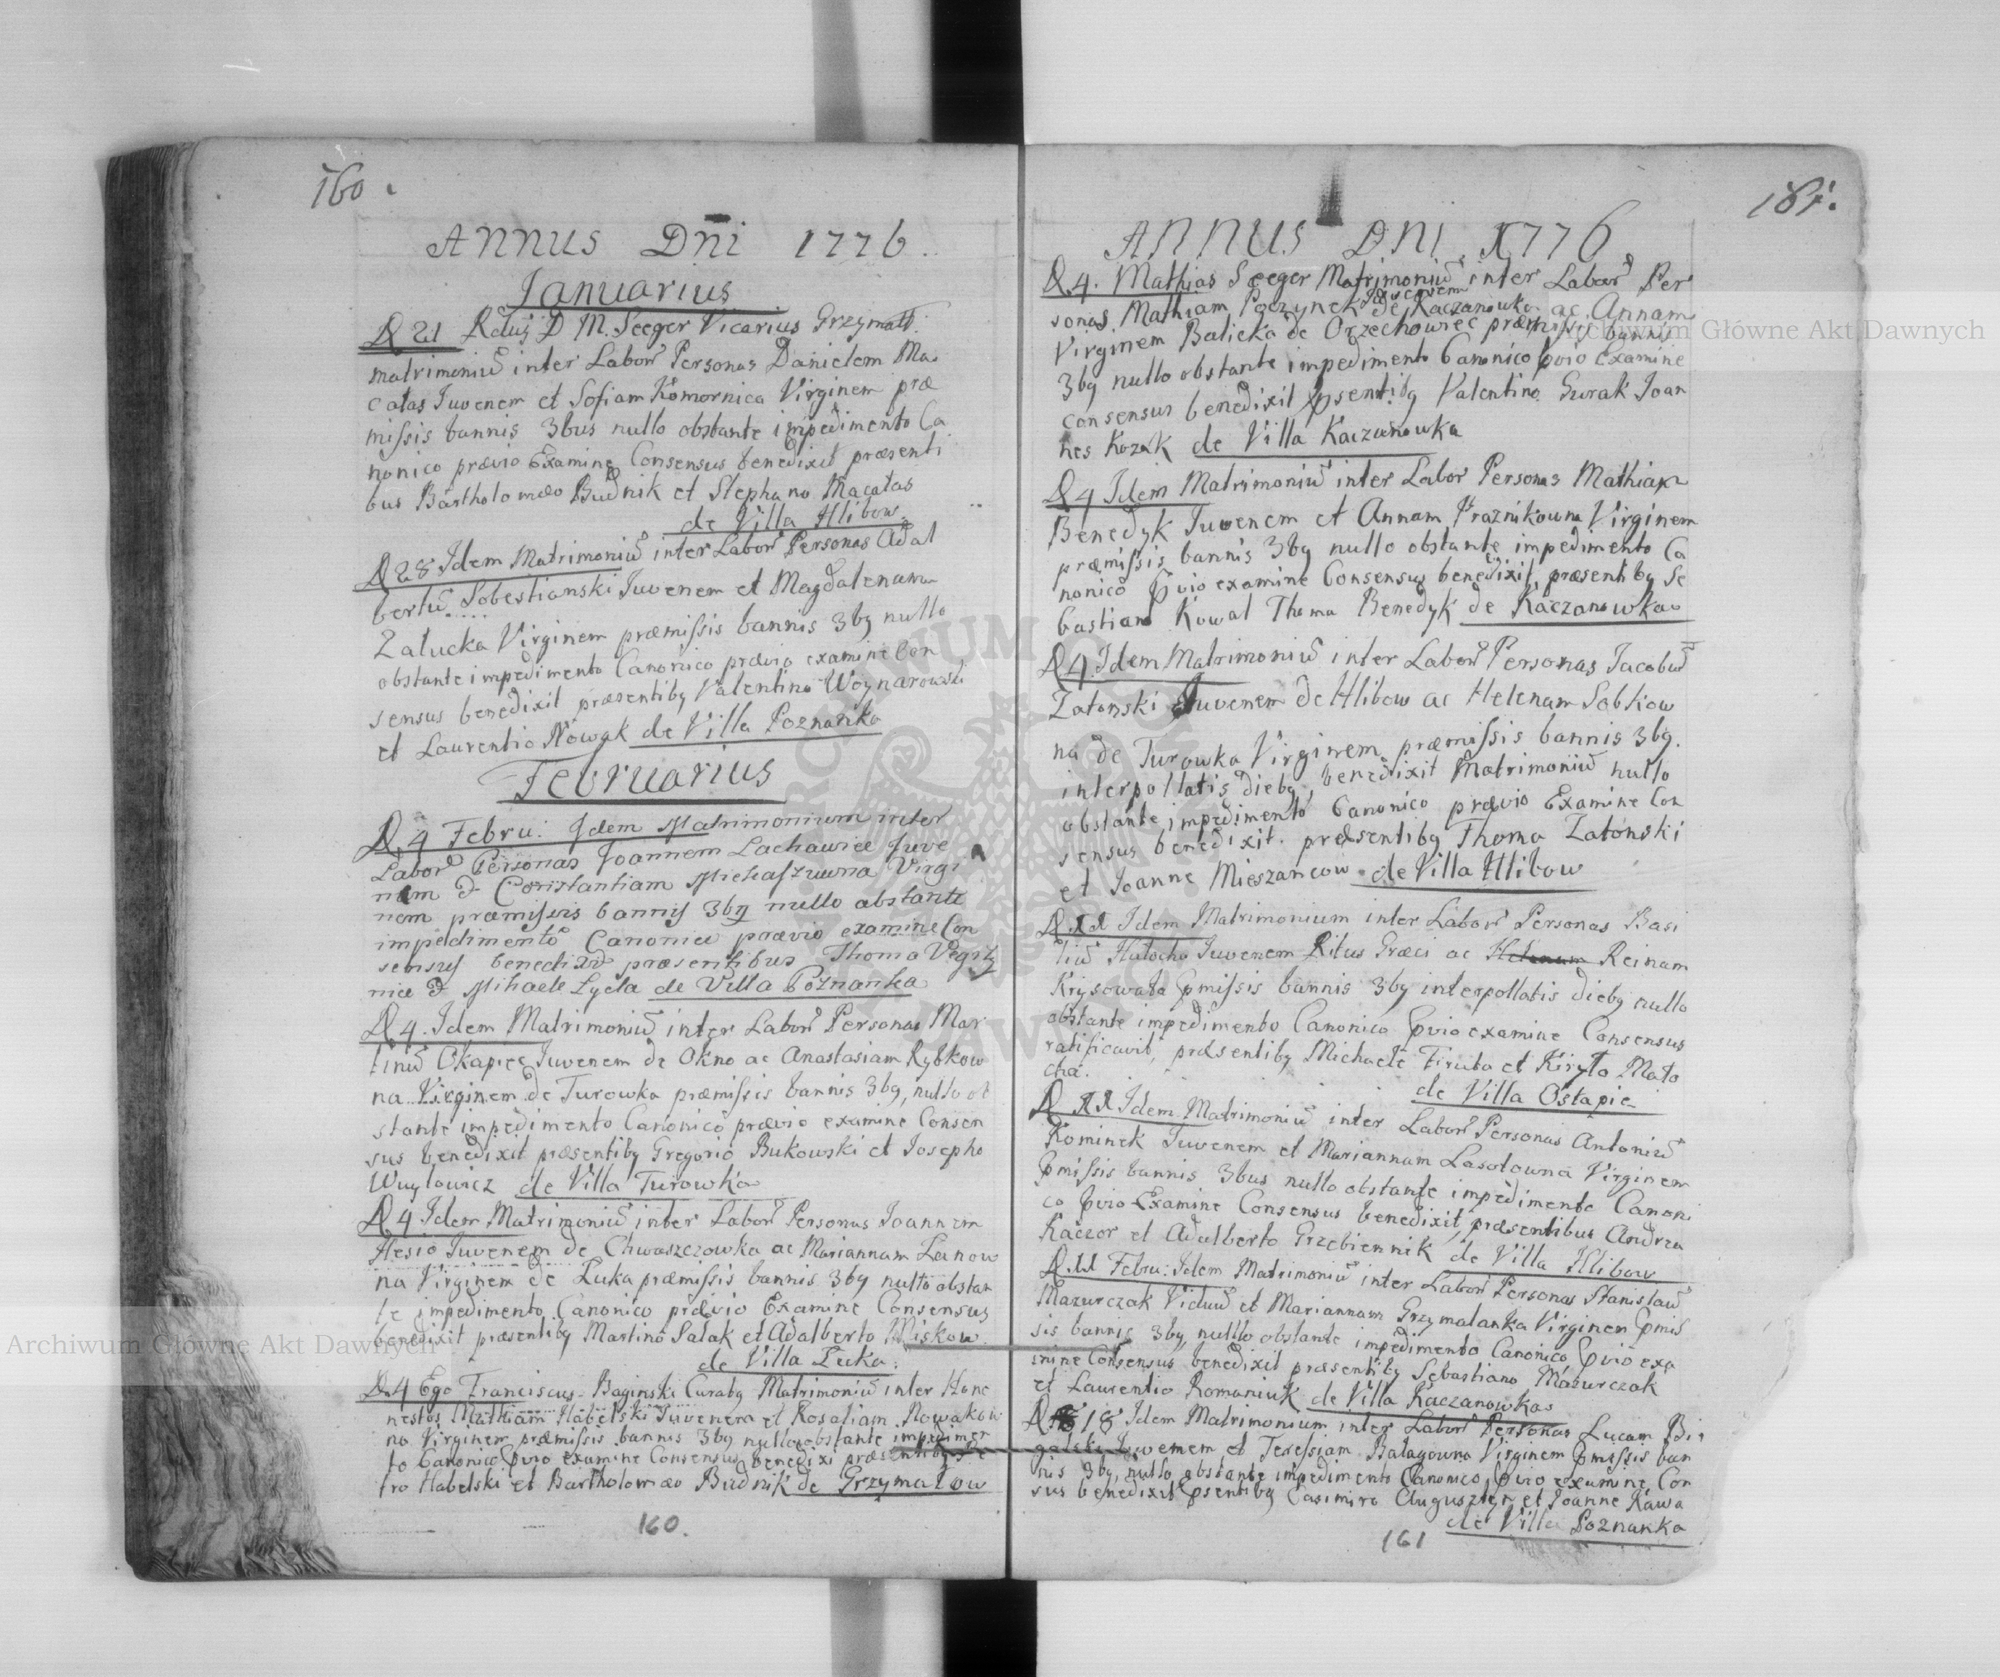 160.
ANNUS Dñi 1776.
Januarius
D 21 Rdus D M. Seeger Vicarius Grzymałł.
matrimoniũ inter Labor Personas Danielem Ma
catas Iuvenem et Sofiam Komornica Virginem præ
missis bannis 3bus nullo obstante impedimento Ca
nonico prævio Examine Consensus benedixit præsenti
bus Bartholomæo Budnik et Stephano Macatas
de Villa Hlibow.
D 28 Idem Matrimoniũ inter Labor Personas Adal
bertũ Sobestianski Iuvenem et Magdalenam
Zalucka Virginem præmissis bannis 3bq nullo
obstante impedimento Canonico prævio examine Con
sensus benedixit præsentibq Valentino Woynarowski
et Laurentio Nowak de Villa Poznanka
Februarius
D. 4 Febru: Idem Matrimonium inter
Labor Personas Joannem Lachawice Juve
nem & Constantiam Michaszuwna Virgi
nem præmissis bannis 3bq nullo obstante
impedimento Canonico prævio examine Con
sensus benedixit præsentibus Thoma
nice & Mihaele Lycla de Villa Poznanka
D 4. Idem Matrimoniũ inter Labor Personas Mar
tinũ Okapiec Iuvenem de Okno ac Anastasiam Rybkow
na Virginem de Turowka præmissis bannis 3bq, nullo ob
stante impedimento Canonico prævio examine Consen
sus benedixit præsentibq Gregorio Bukowski et Josepho
Wuytowicz de Villa Turowka
D 4 Idem Matrimoniũ inter Labor Personas Joannem
Hesio Iuvenem de Chwaszczowka ac Mariannam Lanow
na Virginem de Łuka præmissis bannis 3bq nullo obstan
te impedimento Canonico prævio Examine Consensus
benedixit præsentibq Martino Salak et Adalberto Miskow
de Villa Łuka.
D. 4 Ego Franciscus Baginski Curatq Matrimoniũ inter Hone
nestos Mathiam Habelski Iuvenem et Rosaliam Nowakow
na Virginem præmissis bannis 3bq nullo obstante impedimen
to Canonico pvio examine Consensus benedixi præsentibq Pe
tro Habelski et Bartholomæo Budnik de Grzymalow
160.
161.
ANNUS DNI 1776
D. 4. Mathias Seeger Matrimoniũ inter Labor Per
sonas Mathiam Poczynek Iuvenem de Kaczanowka ac Annam
Virginem Balicka de Orzechowiec præmissis bannis
3bq nullo obstante impedimento Canonico pvio Examine
consensus benedixit psentibq Valentino Gurak Joan
nes Kozak de Villa Kaczanowka
D 4 Idem Matrimoniũ inter Labor Personas Mathiam
Benedyk Iuvenem et Annam Praznikowna Virginem
præmissis bannis 3bq nullo obstante impedimento Ca
nonico pvio examine Consensus benedixit, præsentibq Se
bastiano Kowal Thoma Benedyk de Kaczanowka
D 4. Idem Matrimoniũ inter Labor Personas Jacobũ
Zatonski Iuvenem de Hlibow ac Helenam Sobkow
na de Turowka Virginem præmissis bannis 3bq.
interpollatis diebq, benedixit Matrimoniũ nullo
obstante impedimento Canonico prævio Examine Con
sensus benedixit. præsentibq Thoma Zatonski
et Joanne Mieszancow de Villa Hlibow
D. 11 Idem Matrimonium inter Labor Personas Basi
liũ Hatocha Iuvenem Ritus Græci ac Helenam Reinam
Krysowata pmissis bannis 3bq interpollatis diebq nullo
obstante impedimento Canonico pvio examine Consensus
ratificavit, præsentibq Michaele Firuta et Kiryło Mato
cha.
de Villa Ostapie
D 11 Idem Matrimoniũ inter Labor Personas Antoniũ
Kominek Iuvenem et Mariannam Lasotowna Virginem
pmissis bannis 3bus nullo obstante impedimento Canoni
co pvio Examine Consensus benedixit, præsentibus Andrea
Kaczor et Adalberto Grzebiennik de Villa Hlibow
D. 11 Febru: Idem Matrimoniũ inter Labor Personas Stanislaũ
Mazurczak Viduũ et Mariannam Grzymalanka Virginem pmis
sis bannis 3bq nullo obstante impedimento Canonico pvio exa
mine Consensus benedixit præsentibq Sebastiano Mazurczak
et Laurentio Romaniuk de Villa Kaczanowka
D 18 Idem Matrimonium inter Labor Personas Lucam Bi
galski Iuvenem et Teressiam Balagowna Virginem pmissis ban
nis 3bq, nullo obstante impedimento Canonico, pvio examine Con
sus benedixit psentibq Casimiro Auguszten et Joanne Kawa
de Villa Poznanka
161
Archiwum Główne Akt Dawnych
Archiwum Główne Akt Dawnych